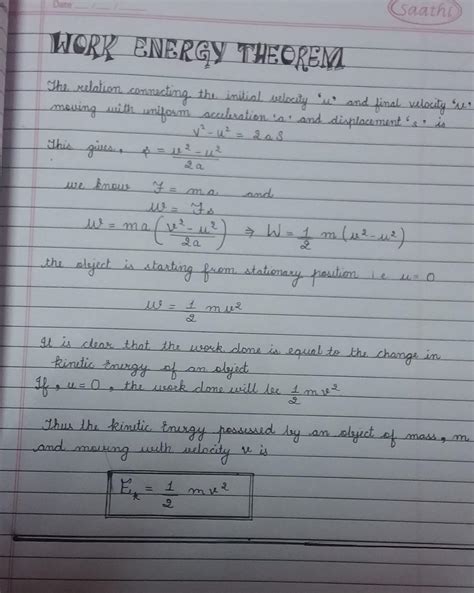 Date ..../..../....
Saathi
WORK ENERGY THEOREM
The relation connecting the initial velocity 'u' and final velocity 'v'
moving with uniform acceleration 'a' and displacement 's' is
v² - u² = 2aS
This gives, s = (v² - u²)/2a
we know F = ma and
W = Fs
W = ma ((v² - u²)/2a) ⇒ W = 1/2 m (v² - u²)
the object is starting from stationary position i.e u = 0
W = 1/2 m v²
It is clear that the work done is equal to the change in
kinetic Energy of an object
If, u = 0, the work done will be 1/2 m v²
Thus the kinetic Energy possessed by an object of mass, m
and moving with velocity v is
Eₖ = 1/2 m v²